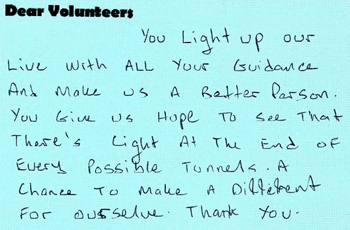 Dear Volunteers
You Light up our
Live With ALL Your Guidance
And Make us A Better Person.
You Give us Hope To See That
There's Light At The End of
Every Possible Tunnels. A
Chance To Make A Different
For ourselve. Thank You.